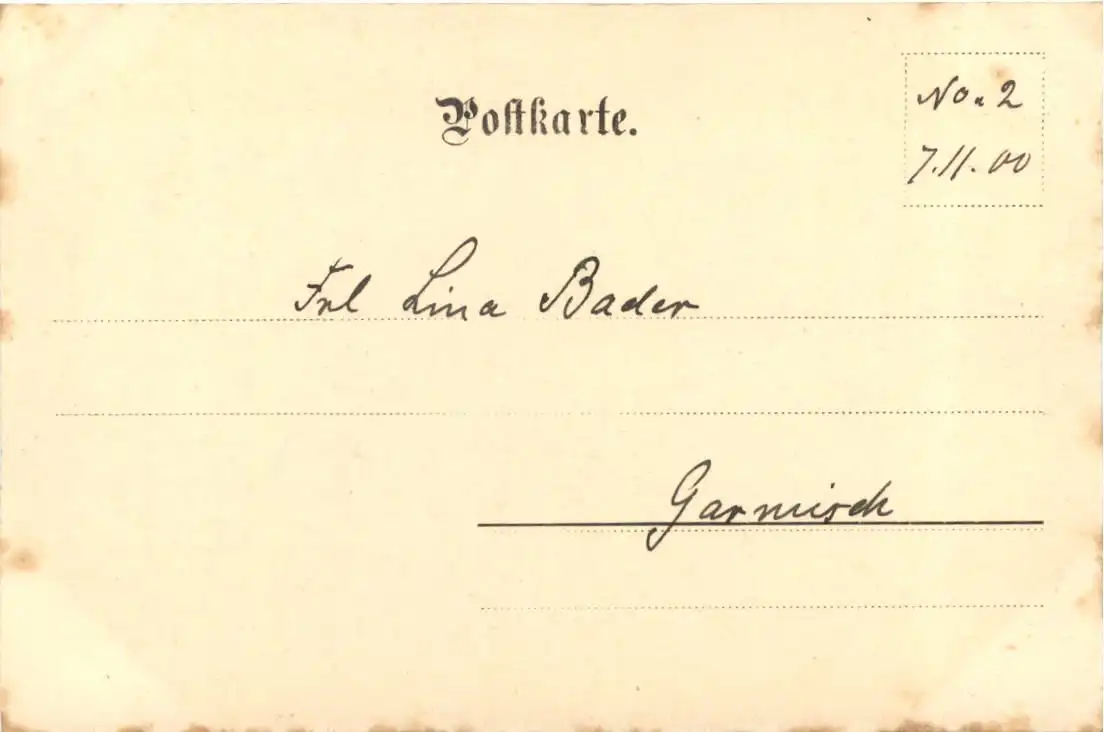 Postkarte.
No. 2
7.11.00
Frl Lina Bader
Garmisch